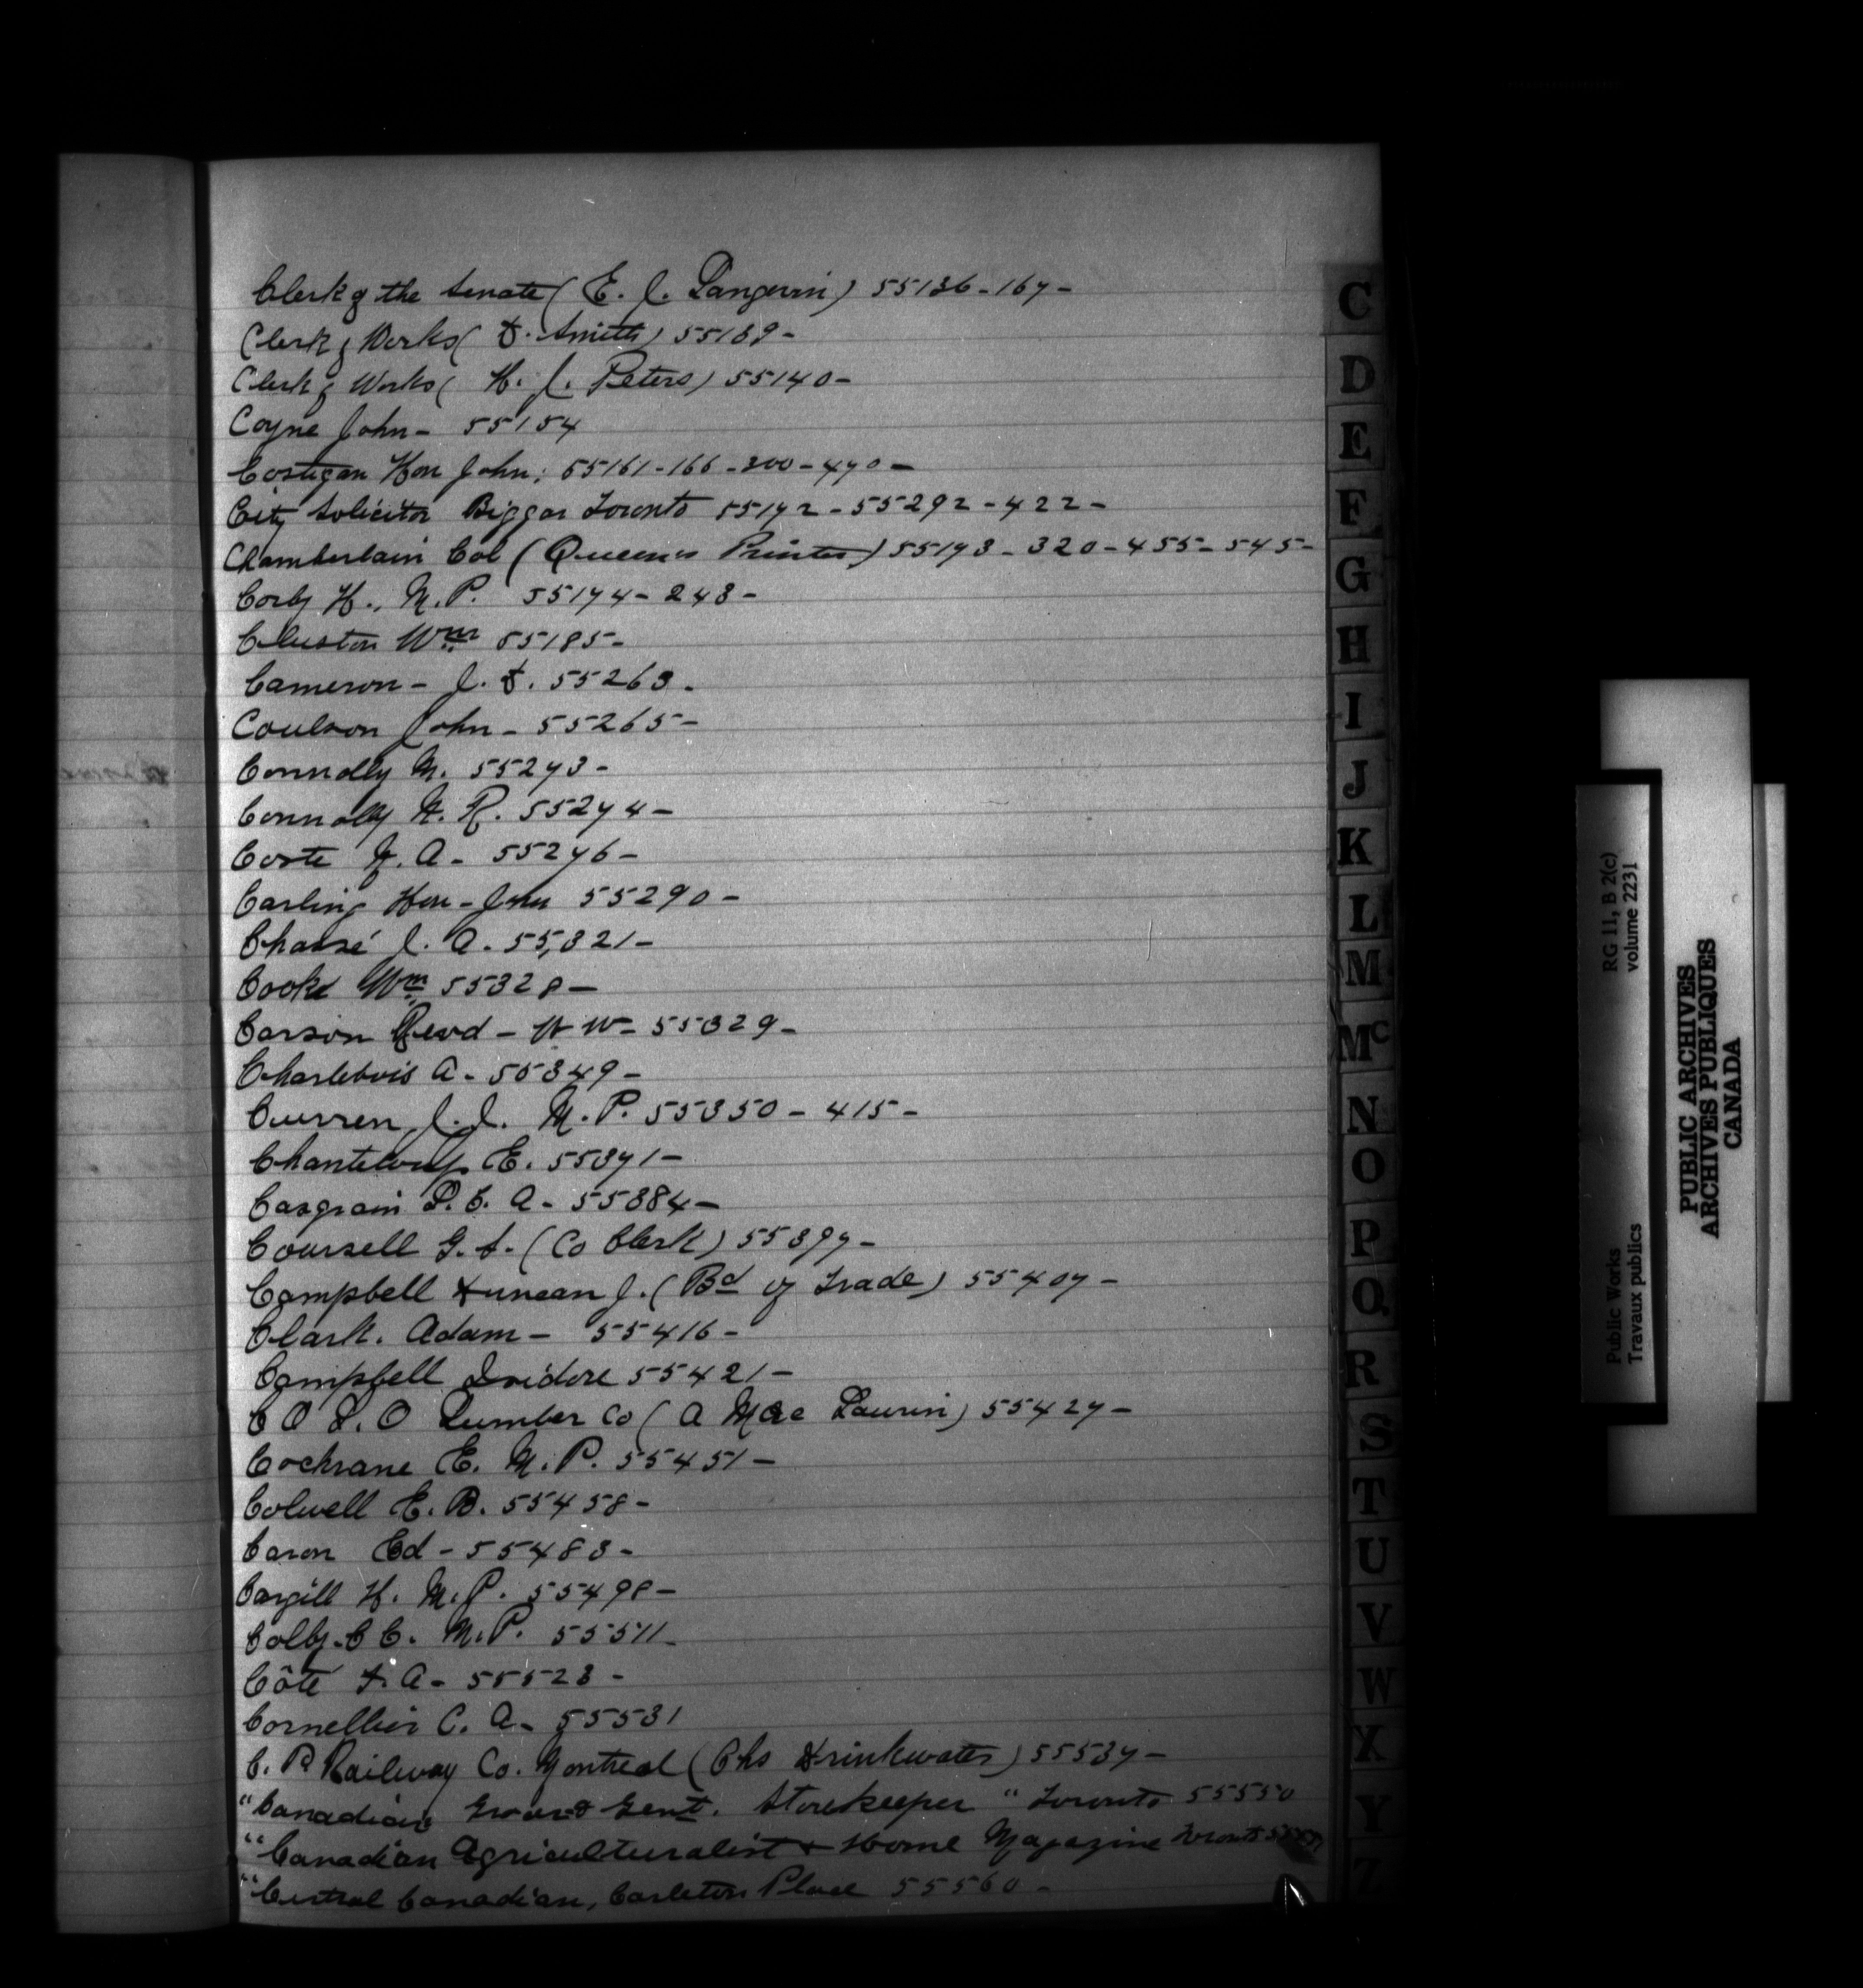 Clerk of the Senate (E. J. Langevin) 55136-167-
Clerk of Works (D. Smith) 55139-
Clerk of Works (H. J. Peters) 55140-
Coyne John- 55154
Costigan Hon John: 55161-166-300-470-
City Solicitor Biggar Toronto 55172-55292-422-
Chamberlain Col (Queen's Printer) 55173-320-455-545-
Corby H., M.P. 55174-243-
Cluston Wm 55185-
Cameron- J. D. 55263.
Coulson John- 55265-
Connolly M. 55273-
Connolly N. R. 55274-
Coste J. A- 55276-
Carling Hon-John 55290-
Chaussé J. A. 55,321-
Cooke Wm 55328-
Carson Revd- W W- 55329-
Charlebois A- 55349-
Curren J. J. M.P. 55350-415-
Chanteloup E. 55371-
Casgrain P. B. A- 55384-
Coursell G. S. (Co Clerk) 55397-
Campbell Duncan J. (Bd of Trade) 55407-
Clark. Adam- 55416-
Campbell Isidore 55421-
C O L. O Lumber Co (A Mac Laurin) 55427-
Cochrane E. M.P. 55451-
Colwell E. B. 55458-
Caron Ed- 55483-
Cargill H. M.P. 55498-
Colby-C C. M.P. 55511-
Côte F. A- 55523-
Cornellier C. A- 55531
C. P. Railway Co. Montreal (Chs Drinkwater) 55537-
"Canadian Grocer & Genl. Storekeeper" Toronto 55550
"Canadian Agriculturalist & Home Magazine Toronto
"Central Canadian, Carleton Place 55560-
C
D
E
F
G
H
I
J
K
L
M
Mc
N
O
P
Q
R
S
T
U
V
W
X
Y
Z
RG 11, B 2(c)
volume 2231
Public Works
Travaux publics
PUBLIC ARCHIVES
ARCHIVES PUBLIQUES
CANADA